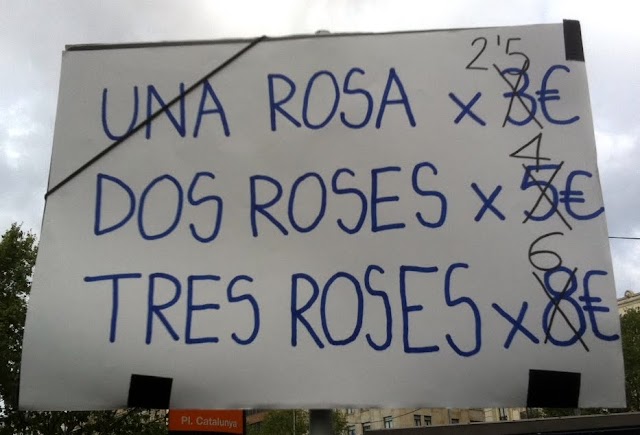 2'5
UNA ROSA x 3€
4
DOS ROSES x 5€
6
TRES ROSES x 8€
Pl. Catalunya